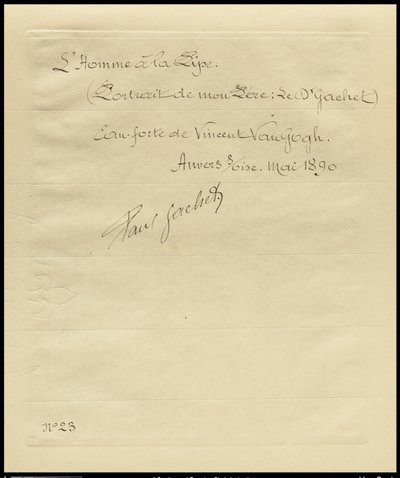 L'Homme à la Pipe.
(Portrait de mon Père: Le Dr Gachet)
Eau-forte de Vincent Van Gogh.
Auvers s/Oise. Mai 1890
Paul Gachet
No 23